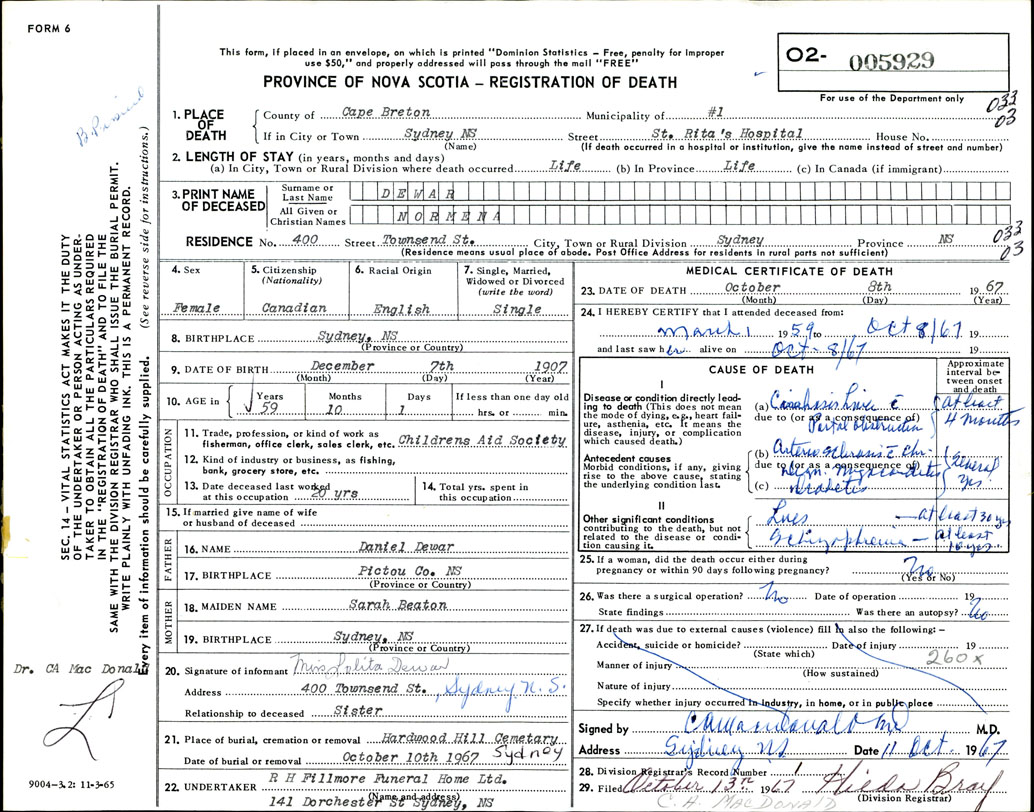 FORM 6
This form, if placed in an envelope, on which is printed "Dominion Statistics – Free, penalty for improper
use $50," and properly addressed will pass through the mail "FREE"
PROVINCE OF NOVA SCOTIA – REGISTRATION OF DEATH
02- 005929
For use of the Department only
033
03
1. PLACE OF DEATH
County of Cape Breton Municipality of #1
If in City or Town Sydney NS Street St. Rita's Hospital House No.
(Name) (If death occurred in a hospital or institution, give the name instead of street and number)
2. LENGTH OF STAY (in years, months and days)
(a) In City, Town or Rural Division where death occurred Life (b) In Province Life (c) In Canada (if immigrant)
3. PRINT NAME OF DECEASED
Surname or Last Name DEWAR
All Given or Christian Names NORMENA
RESIDENCE No. 400 Street Townsend St. City, Town or Rural Division Sydney Province NS
(Residence means usual place of abode. Post Office Address for residents in rural parts not sufficient)
033
03
4. Sex
Female
5. Citizenship
(Nationality)
Canadian
6. Racial Origin
English
7. Single, Married,
Widowed or Divorced
(write the word)
Single
8. BIRTHPLACE Sydney, NS
(Province or Country)
9. DATE OF BIRTH December 7th 1907
(Month) (Day) (Year)
10. AGE in
Years Months Days If less than one day old
59 10 1 hrs. or min.
OCCUPATION
11. Trade, profession, or kind of work as
fisherman, office clerk, sales clerk, etc. Childrens Aid Society
12. Kind of industry or business, as fishing,
bank, grocery store, etc.
13. Date deceased last worked
at this occupation 20 yrs
14. Total yrs. spent in
this occupation
15. If married give name of wife
or husband of deceased
FATHER
16. NAME Daniel Dewar
17. BIRTHPLACE Pictou Co. NS
(Province or Country)
MOTHER
18. MAIDEN NAME Sarah Beaton
19. BIRTHPLACE Sydney, NS
(Province or Country)
20. Signature of informant Miss Lolita Dewar
Address 400 Townsend St., Sydney N.S.
Relationship to deceased Sister
21. Place of burial, cremation or removal Hardwood Hill Cemetary
Sydney
Date of burial or removal October 10th 1967
22. UNDERTAKER R H Fillmore Funeral Home Ltd.
(Name and address)
141 Dorchester St Sydney, NS
MEDICAL CERTIFICATE OF DEATH
23. DATE OF DEATH October 8th 1967
(Month) (Day) (Year)
24. I HEREBY CERTIFY that I attended deceased from:
March 1 1959 to Oct 8/67 19
and last saw her alive on Oct - 8/67 19
CAUSE OF DEATH
Approximate
interval be-
tween onset
and death
I
Disease or condition directly lead-
ing to death (This does not mean
the mode of dying, e.g., heart fail-
ure, asthenia, etc. It means the
disease, injury, or complication
which caused death.)
(a) Cirrhosis Liver c̄
due to (or as a consequence of)
Portal obstruction
at least
4 months
Antecedent causes
Morbid conditions, if any, giving
rise to the above cause, stating
the underlying condition last.
(b) Arteriosclerosis c̄ Chr.
due to (or as a consequence of)
Degen. Myocarditis
(c) Diabetis
Several
yrs
II
Other significant conditions
contributing to the death, but not
related to the disease or condi-
tion causing it.
Lues — at least 30 yrs
Schizophrenia — at least
25. If a woman, did the death occur either during
pregnancy or within 90 days following pregnancy? No
(Yes or No)
26. Was there a surgical operation? No Date of operation 19
State findings Was there an autopsy? No
27. If death was due to external causes (violence) fill in also the following: –
Accident, suicide or homicide? Date of injury 19
(State which)
260x
Manner of injury
(How sustained)
Nature of injury
Specify whether injury occurred in Industry, in home, or in public place
Signed by CA MacDonald MD M.D.
Address Sydney NS Date 11 Oct 1967
28. Division Registrar's Record Number 1
29. Filed October 13th 1967 Hilda Bray
(Division Registrar)
C. A. MACDONALD
SEC. 14 – VITAL STATISTICS ACT MAKES IT THE DUTY
OF THE UNDERTAKER OR PERSON ACTING AS UNDER-
TAKER TO OBTAIN ALL THE PARTICULARS REQUIRED
IN THE "REGISTRATION OF DEATH" AND TO FILE THE
SAME WITH THE DIVISION REGISTRAR WHO SHALL ISSUE THE BURIAL PERMIT.
WRITE PLAINLY WITH UNFADING INK. THIS IS A PERMANENT RECORD.
Every item of information should be carefully supplied. (See reverse side for instructions.)
Dr. CA Mac Donald
9004-3.2: 11-3-65